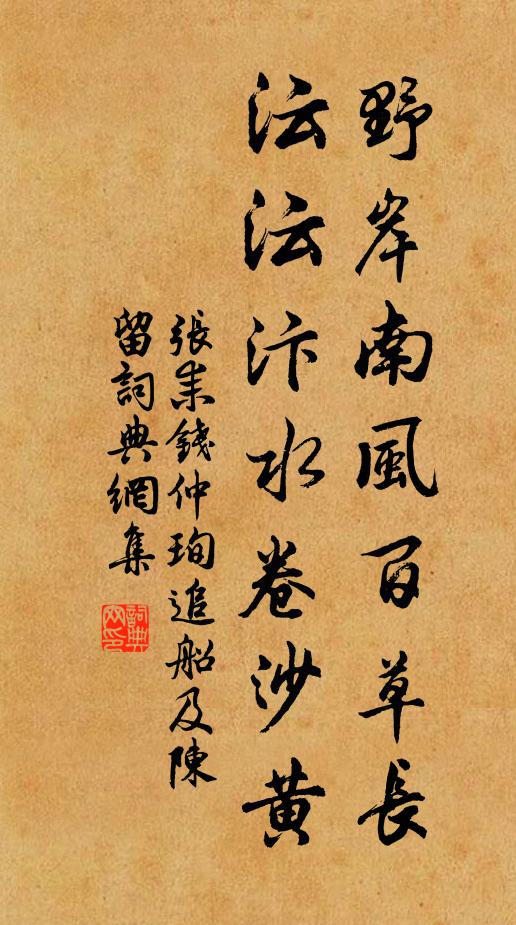 野岸南風百草長
沄沄汴水卷沙黃
張耒錢仲珣追船及陳
留詞典網集
詞典
網印